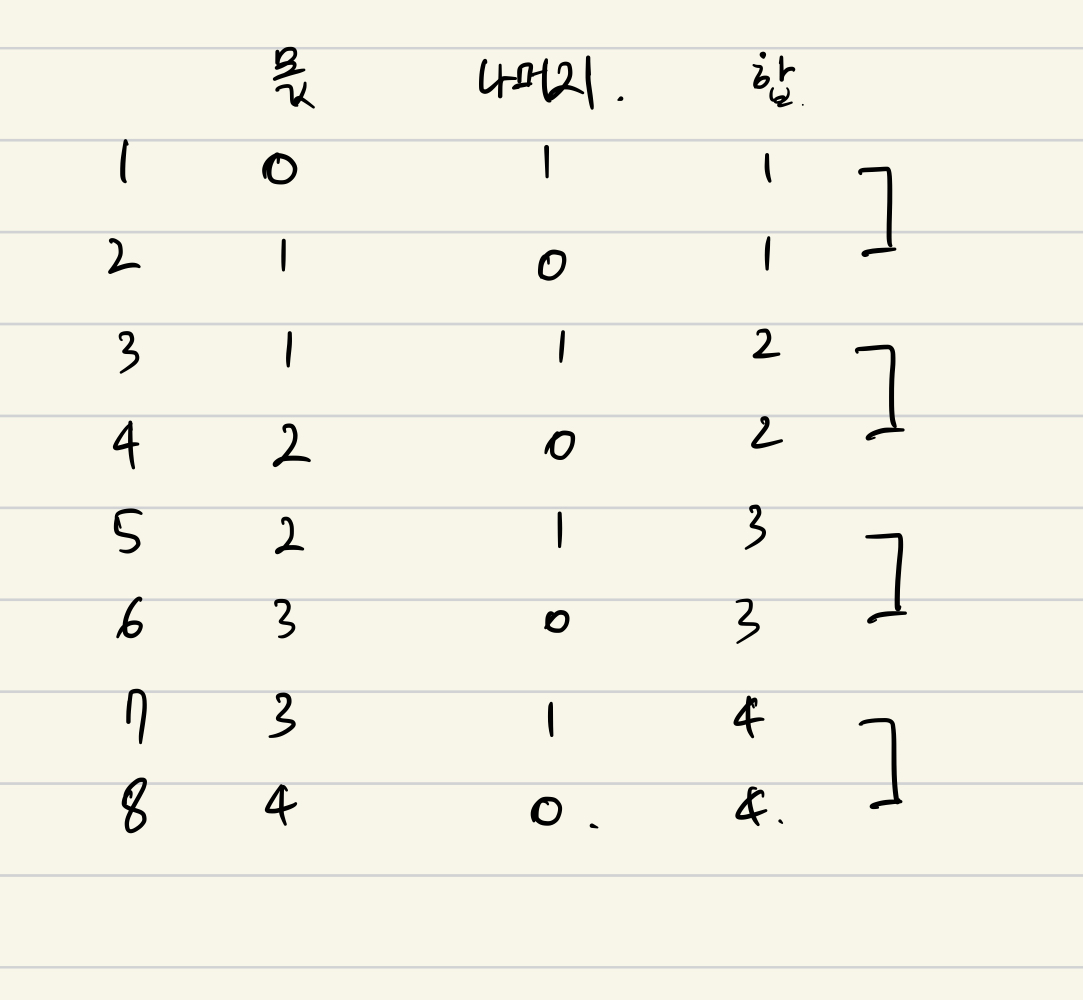 몫 나머지. 합.
1 0 1 1
2 1 0 1
3 1 1 2
4 2 0 2
5 2 1 3
6 3 0 3
7 3 1 4
8 4 0. 4.